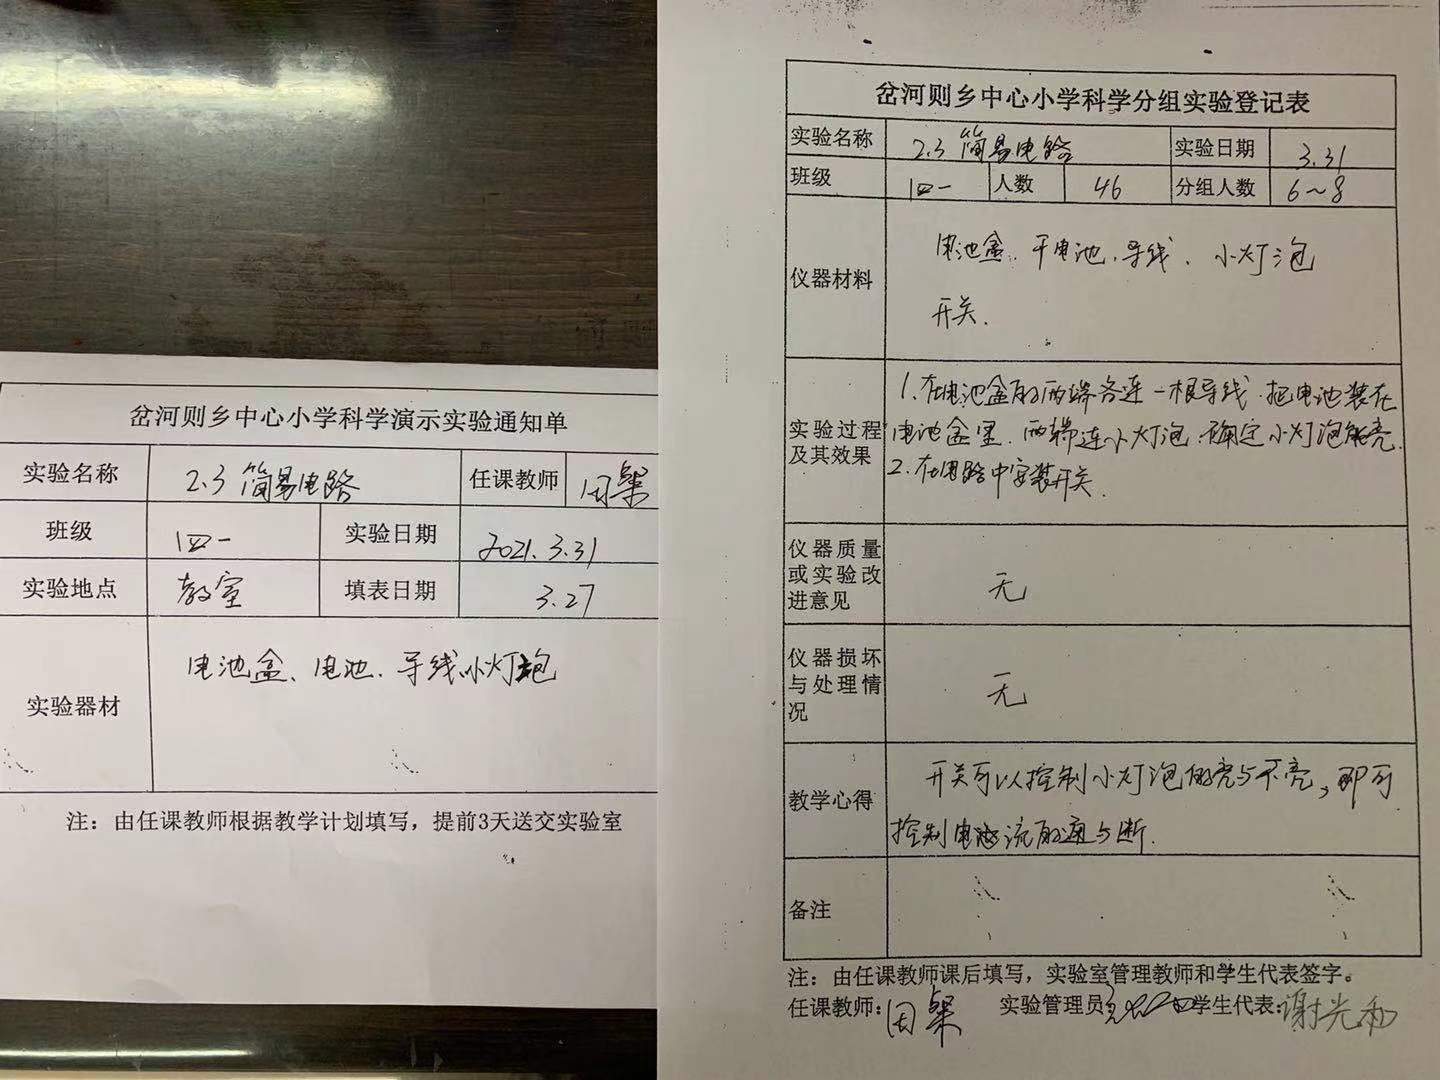 岔河则乡中心小学科学演示实验通知单
实验名称 2.3 简易电路 任课教师
班级 四一 实验日期 2021.3.31
实验地点 教室 填表日期 3.27
实验器材 电池盒、电池、导线、小灯炮
注：由任课教师根据教学计划填写，提前3天送交实验室
岔河则乡中心小学科学分组实验登记表
实验名称 2.3 简易电路 实验日期 3.31
班级 四一 人数 46 分组人数 6～8
仪器材料 电池盒、干电池、导线、小灯泡
开关.
实验过程及其效果 1.在电池盒的两端各连一根导线.把电池装在
电池盒里.两端连小灯泡.确定小灯泡能亮.
2.在电路中安装开关.
仪器质量
或实验改
进意见 无
仪器损坏
与处理情
况 无
教学心得 开关可以控制小灯泡的亮与不亮，即可
控制电流的通与断.
备注
注：由任课教师课后填写，实验室管理教师和学生代表签字。
任课教师: 实验管理员 学生代表:谢光和